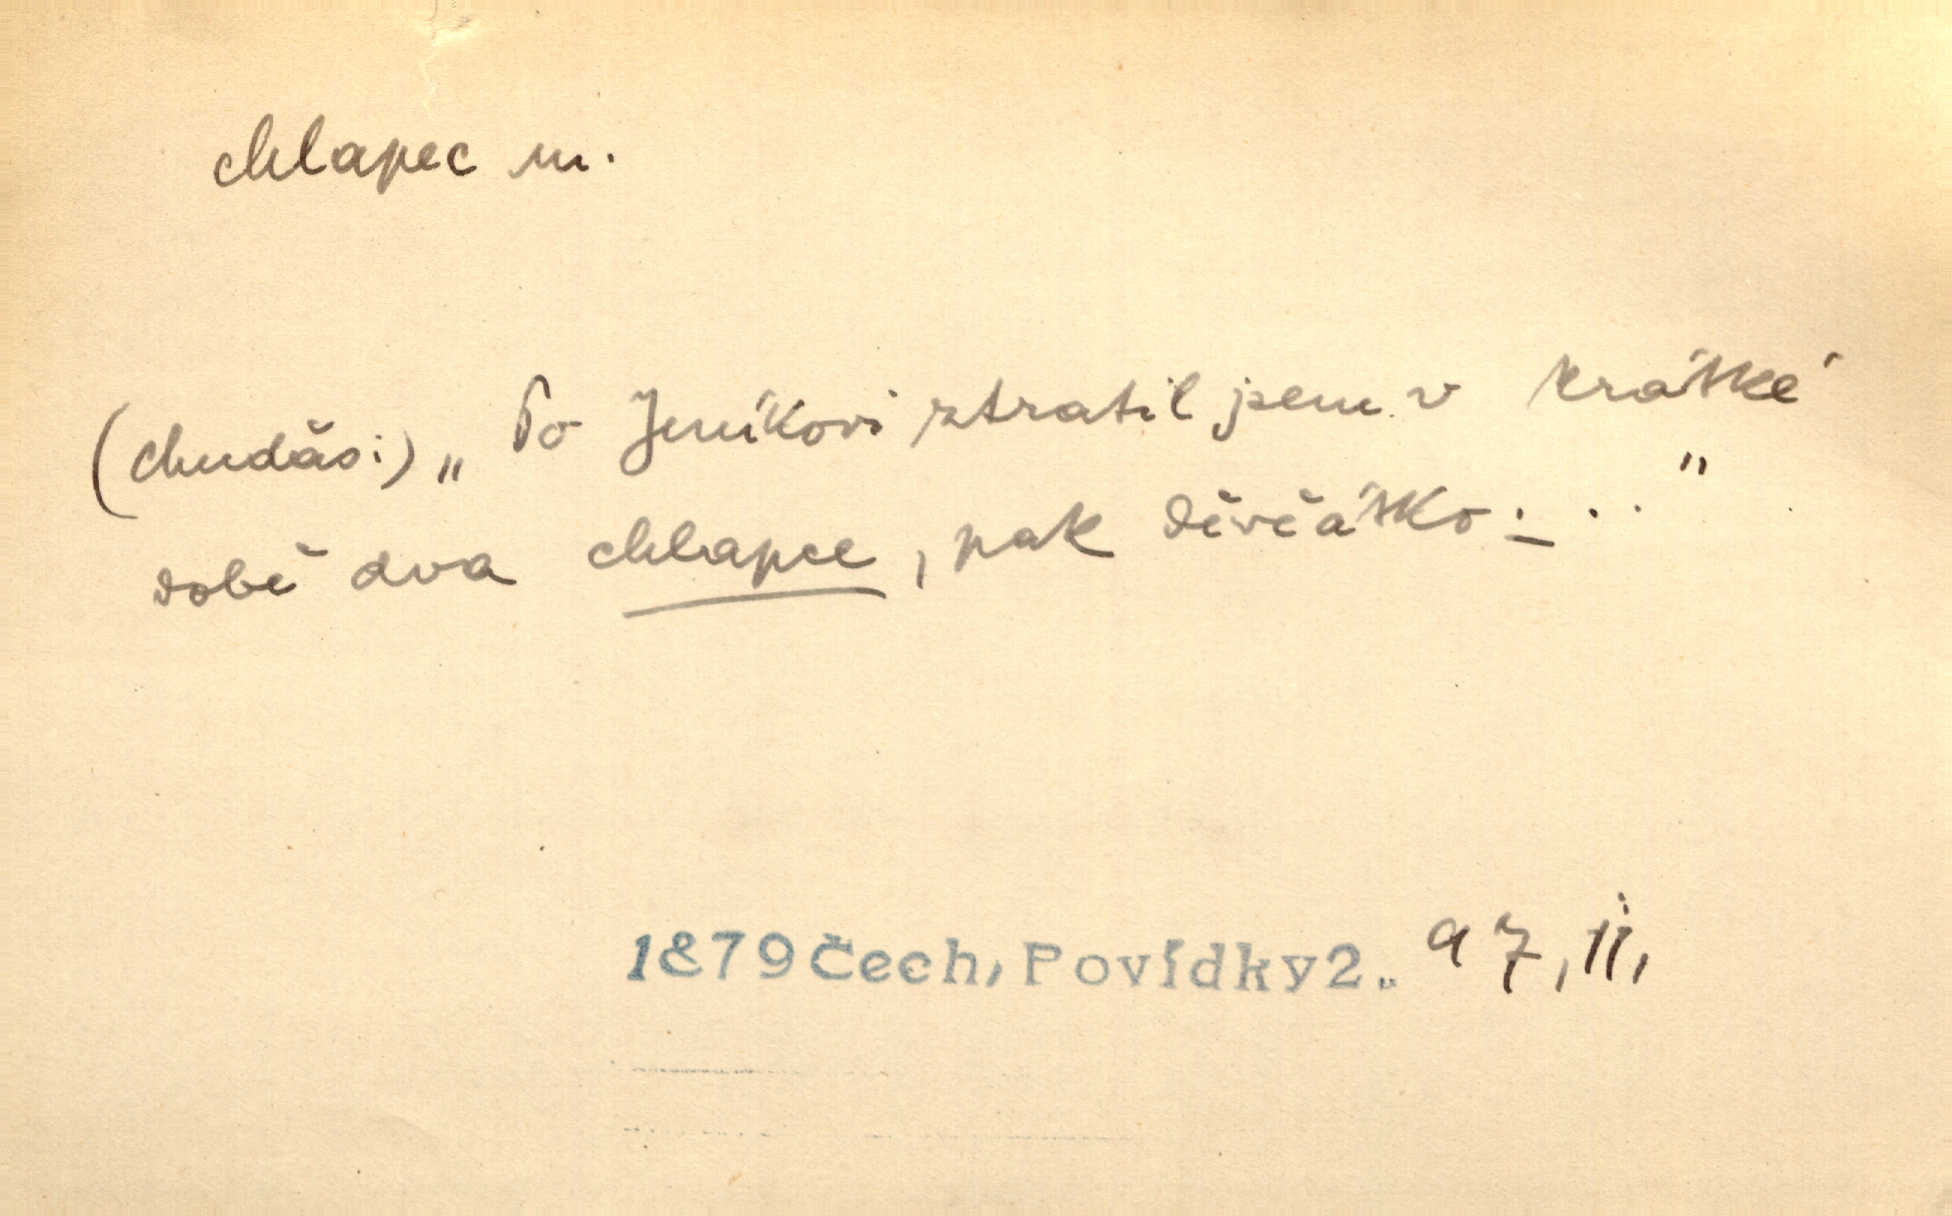 chlapec m.
(chudás:) „Po Jeníkovi ztratil jsem v krátké
době dva chlapce, pak děvčátko. . .“
1879 Čech, Povídky 2.. 97, II,